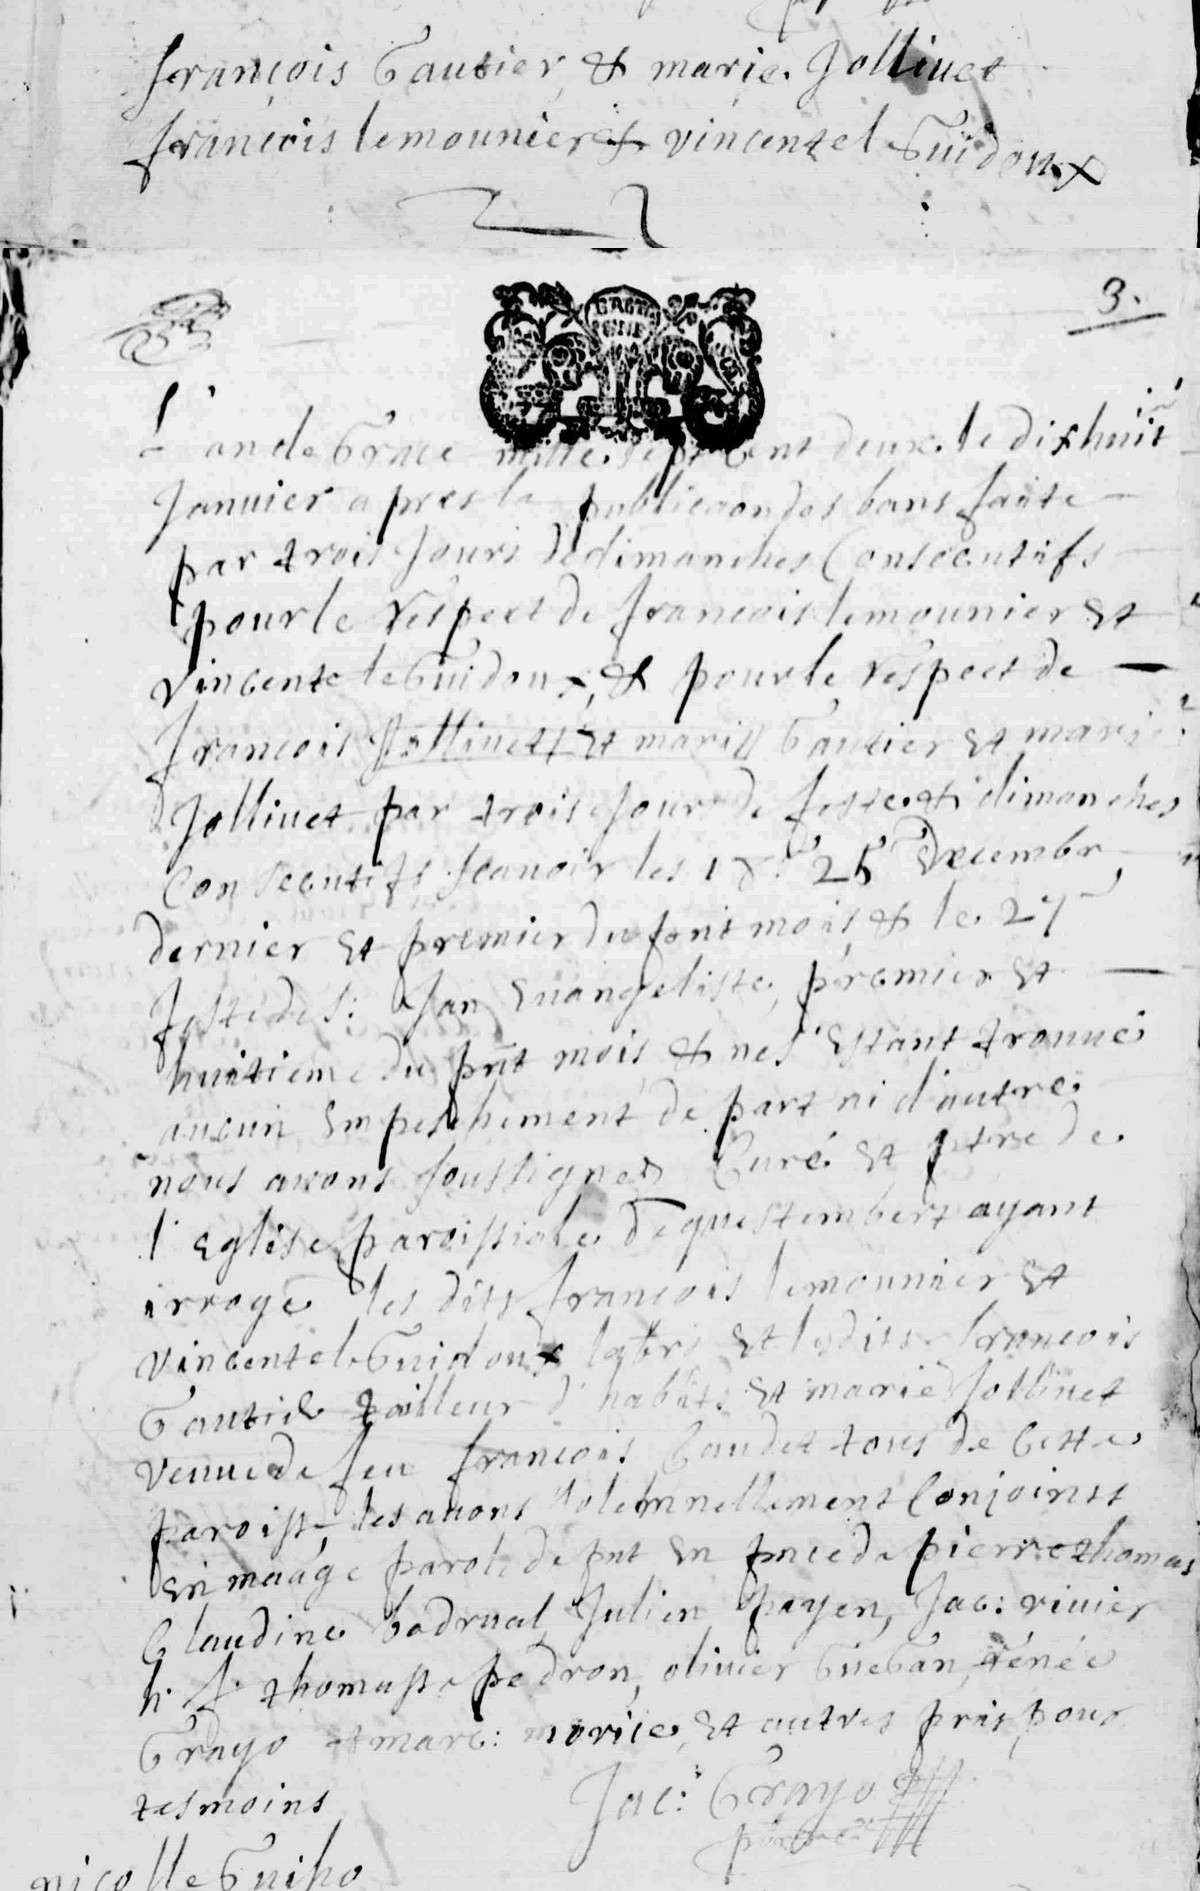 françois Gautier & marie Jollivet
françois lemounier & vincente l Guidoux
BRETA
GNE
3.
L'an de Grace mille sept Cent deux le dixhuit
Janvier apres la publicaon des bans faite
par trois Jours de dimanches Consecutifs
pour le respect de francois lemounier et
vincente le Guidoux, & pour le respect de
francois Jollivett et marie Gautier et marie
Jollivet par trois Jours de feste & dimanches
Consecutifs scavoir les 18. 25 decembr
dernier et premier du pnt mois & le 27
feste de s: Jan Evangeliste, premier et
huitieme du pnt mois & ne s'estant trouvé
aucun Empeschement de part ni d'autre
nous avons soussignés Curé et ptre de
l'Eglise paroissiale de questembert ayant
irrogé les dits francois lemounier et
vincente le Guidoux et lesdits francois
Gautier tailleur d'habits et marie Jollivet
veuve de feu francois Caudet tous de Cette
paroisse les avons solemnellement Conjoints
en maage parole de pnt en pnce de pierre thomas
Glaudine bodrual Julien payen, Jac: vivier
h. f. thomasse pedron, olivier Gueban, rénée
Grayo et marc: morice, et autres pris pour
tesmoins
Jac: Grayo
nicolle Guiho